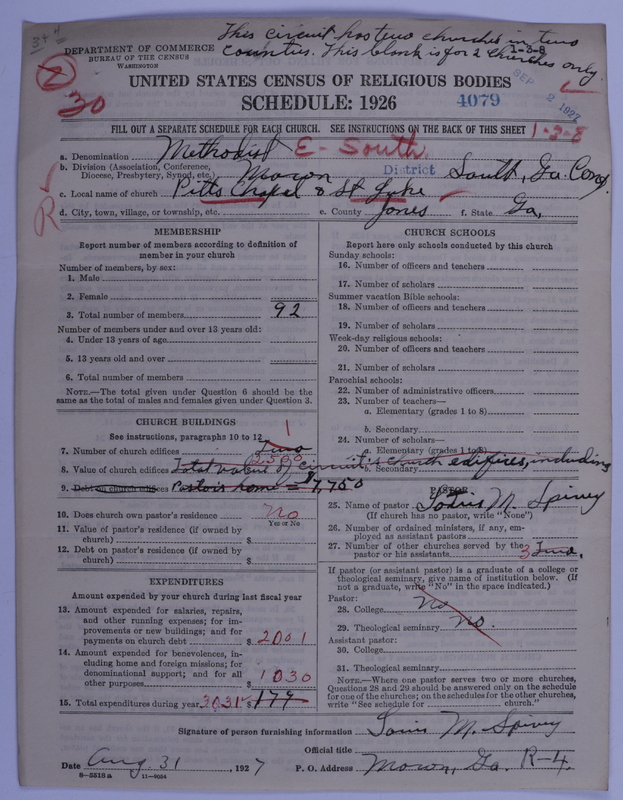 3+4
This circuit has two churches in two
counties. This blank is for 2 churches only.
1-3-8
DEPARTMENT OF COMMERCE
BUREAU OF THE CENSUS
WASHINGTON
SEP 2 1927
30
UNITED STATES CENSUS OF RELIGIOUS BODIES
SCHEDULE: 1926
4079
FILL OUT A SEPARATE SCHEDULE FOR EACH CHURCH. SEE INSTRUCTIONS ON THE BACK OF THIS SHEET
1-3-8
a. Denomination Methodist E-South
b. Division (Association, Conference, Diocese, Presbytery, Synod, etc.) Macon District South, Ga. Conf.
c. Local name of church Pitts Chapel & St Luke
R
d. City, town, village, or township, etc.
e. County Jones
f. State Ga,
MEMBERSHIP
Report number of members according to definition of
member in your church
Number of members, by sex:
1. Male
2. Female
3. Total number of members 92
Number of members under and over 13 years old:
4. Under 13 years of age
5. 13 years old and over
6. Total number of members
NOTE.—The total given under Question 6 should be the
same as the total of males and females given under Question 3.
CHURCH BUILDINGS
See instructions, paragraphs 10 to 12
1
7. Number of church edifices Two
2,500
8. Value of church edifices Total value of circuit's church edifices, including
9. Debt on church edifices Pastor's home = $7,750
10. Does church own pastor's residence No
Yes or No
11. Value of pastor's residence (if owned by
church) $
12. Debt on pastor's residence (if owned by
church) $
EXPENDITURES
Amount expended by your church during last fiscal year
13. Amount expended for salaries, repairs,
and other running expenses; for im-
provements or new buildings; and for
payments on church debt $ 2001
14. Amount expended for benevolences, in-
cluding home and foreign missions; for
denominational support; and for all
other purposes $ 1030
15. Total expenditures during year 3031 $ 179
CHURCH SCHOOLS
Report here only schools conducted by this church
Sunday schools:
16. Number of officers and teachers
17. Number of scholars
Summer vacation Bible schools:
18. Number of officers and teachers
19. Number of scholars
Week-day religious schools:
20. Number of officers and teachers
21. Number of scholars
Parochial schools:
22. Number of administrative officers
23. Number of teachers—
a. Elementary (grades 1 to 8)
b. Secondary
24. Number of scholars—
a. Elementary (grades 1 to 8)
b. Secondary
PASTOR
25. Name of pastor M. Spivey
(If church has no pastor, write "None")
26. Number of ordained ministers, if any, em-
ployed as assistant pastors
27. Number of other churches served by the
pastor or his assistants 3 Two,
If pastor (or assistant pastor) is a graduate of a college or
theological seminary, give name of institution below. (If
not a graduate, write "No" in the space indicated.)
Pastor:
28. College No
29. Theological seminary No.
Assistant pastor:
30. College
31. Theological seminary
NOTE.—Where one pastor serves two or more churches,
Questions 28 and 29 should be answered only on the schedule
for one of the churches; on the schedules for the other churches,
write "See schedule for church."
Signature of person furnishing information M. Spivey
Official title
Date Aug. 31, 1927
P. O. Address Macon, Ga. R-4.
8-5518 a 11-9034